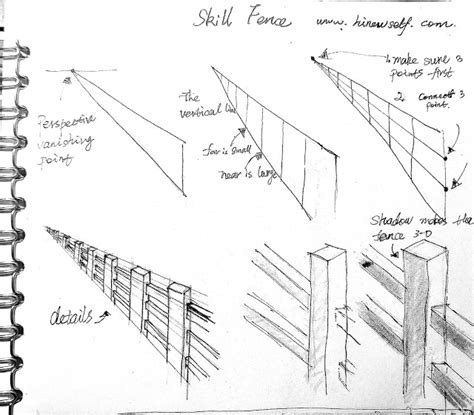 Skill Fence www.hinewself.com.
1. make sure 3
points first
2. Connect 3
point.
Perspective
vanishing
point
The
vertical line
far is small
near is large
Shadow makes the
fence 3-D
details